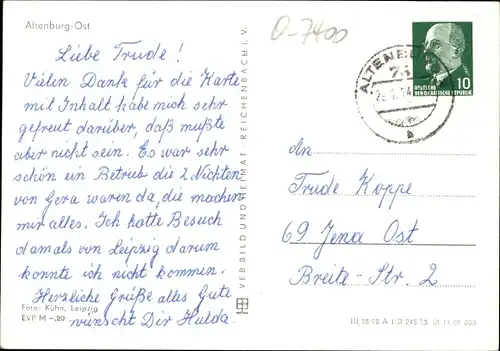 Altenburg-Ost
O-7400
Liebe Trude!
Vielen Dank für die Karte
mit Inhalt habe mich sehr
gefreut darüber, daß mußte
aber nicht sein. Es war sehr
schön ein Betrieb die 2 Nichten
von Gera waren da, die machen
mir alles. Ich hatte Besuch
damals von Leipzig darum
konnte ich nicht kommen.
Herzliche Grüße alles Gute
wünscht Dir Hulda.
Foto: Kühn, Leipzig
EVP M –.20
VEB BILD UND HEIMAT REICHENBACH i. V.
ALTENBURG
74
DEUTSCHE
DEMOKRATISCHE REPUBLIK
10
a
An
Trude Koppe
69 Jena Ost
Breite-Str. 2
III 18 98 A 1 B 245 73 01 13 01 203